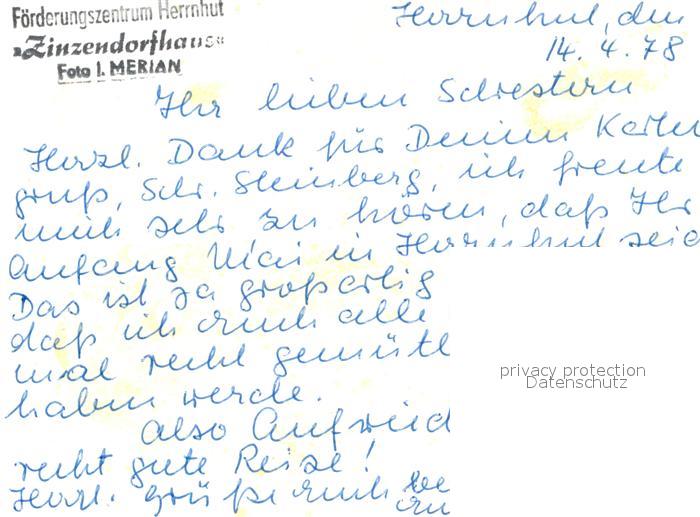 Förderungszentrum Herrnhut
„Zinzendorfhaus“
Foto I. MERIAN
Herrnhut, den
14. 4. 78
Ihr lieben Schwestern
Herzl. Dank für Deinen Karten
gruß, Schr. Steinberg, ich freute
mich sehr zu hören, daß Ihr
Anfang Mai in Herrnhut seid
Das ist ja großartig
daß ich euch alle
mal recht gemütl
haben werde.
Also Aufwied
recht gute Reise!
Herzl. Grüße euch
privacy protection
Datenschutz